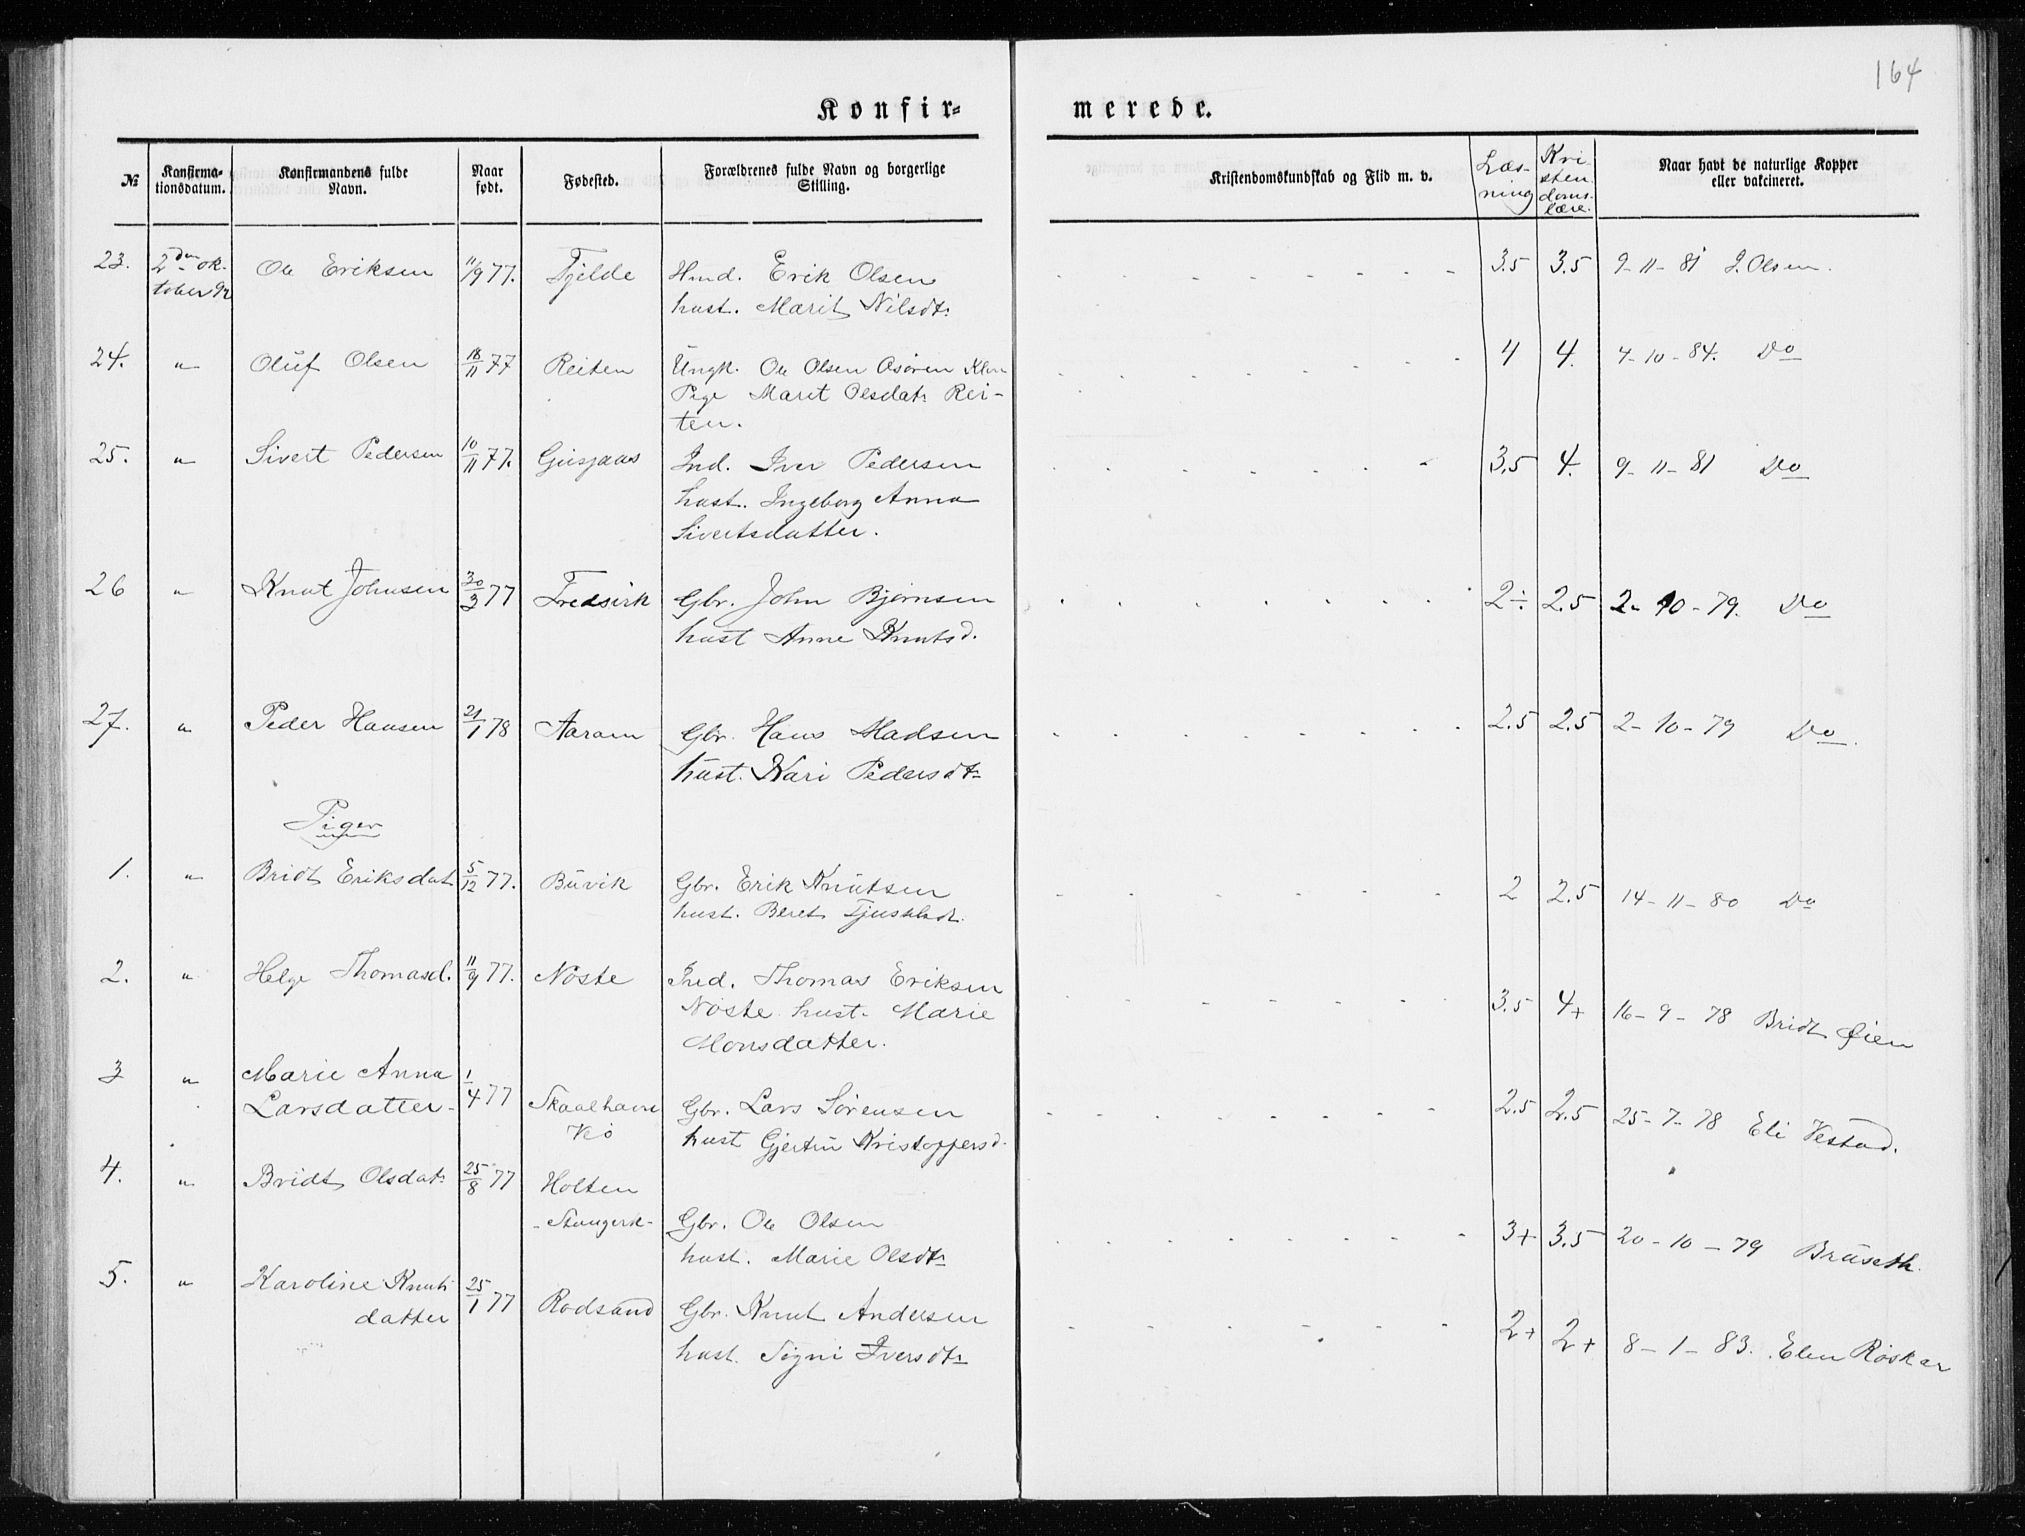 164
Konfir=
merede.
№
Konfirma-
tionsdatum.
Konfirmandens fulde
Navn.
Naar
født.
Fødested.
Forældrenes fulde Navn og borgerlige
Stilling.
Kristendomskundskab og Flid m. v.
Læs-
ning
Kri-
sten
doms-
lære.
Naar havt de naturlige Kopper
eller vakcineret.
23. 2den ok- Ole Eriksen 11/9 77. Fjelde Hmd. Erik Olsen 3.5 3.5 9-11-81 J. Olsen.
tober 92 hust. Marit Nilsdtr
24. " Oluf Olsen 18/11 77 Reiten Ungk. Ole Olsen 4 4. 7-10-84. Do
Pige Marit Olsdatr Rei-
ten.
25. " Sivert Pedersen 10/11 77. Ind. Iver Pedersen 3.5 4. 9-11-81 Do
hust. Ingeborg Anna
Sivertsdatter.
26 " Knut Johnsen 30/3 77 Fredsvik Gbr. John Bjørnsen 2÷ 2.5 2-10-79. Do
hust Anne Knutsd.
27. " Peder Hansen 21/1 78 Aaram Gbr. Hans Madsen 2.5 2.5 2-10-79 Do.
hust. Kari Pedersdtr
Piger
1. " Bridt Eriksdat 5/12 77. Buvik Gbr. Erik Knutsen 2 2.5 14-11-80 Do
hust. Beret
2. " Helge Thomasd. 11/9 77. Nøste Ind. Thomas Eriksen 3.5 4+ 16-9-78 Bridt Øien
Nøste hust. Marie
Monsdatter.
3 " Marie Anna 1/4 77
Larsdatter Skaalhavn Gbr. Lars Sørensen 2.5 2.5 25-7-78 Eli Vestad.
hust Gjertru Kristoffersd.
4. " Bridt Olsdatr 25/8 77 Holten
Stangvik Gbr. Ole Olsen 3+ 3.5 20-10-79 Bruseth.
hust. Marie Olsdtr
5. " Karoline Knuts 25/1 77 Rodsand Gbr. Knut Andersen 2+ 2+ 8-1-83. Elen Røskar
datter
hust. Signi Iversdtr